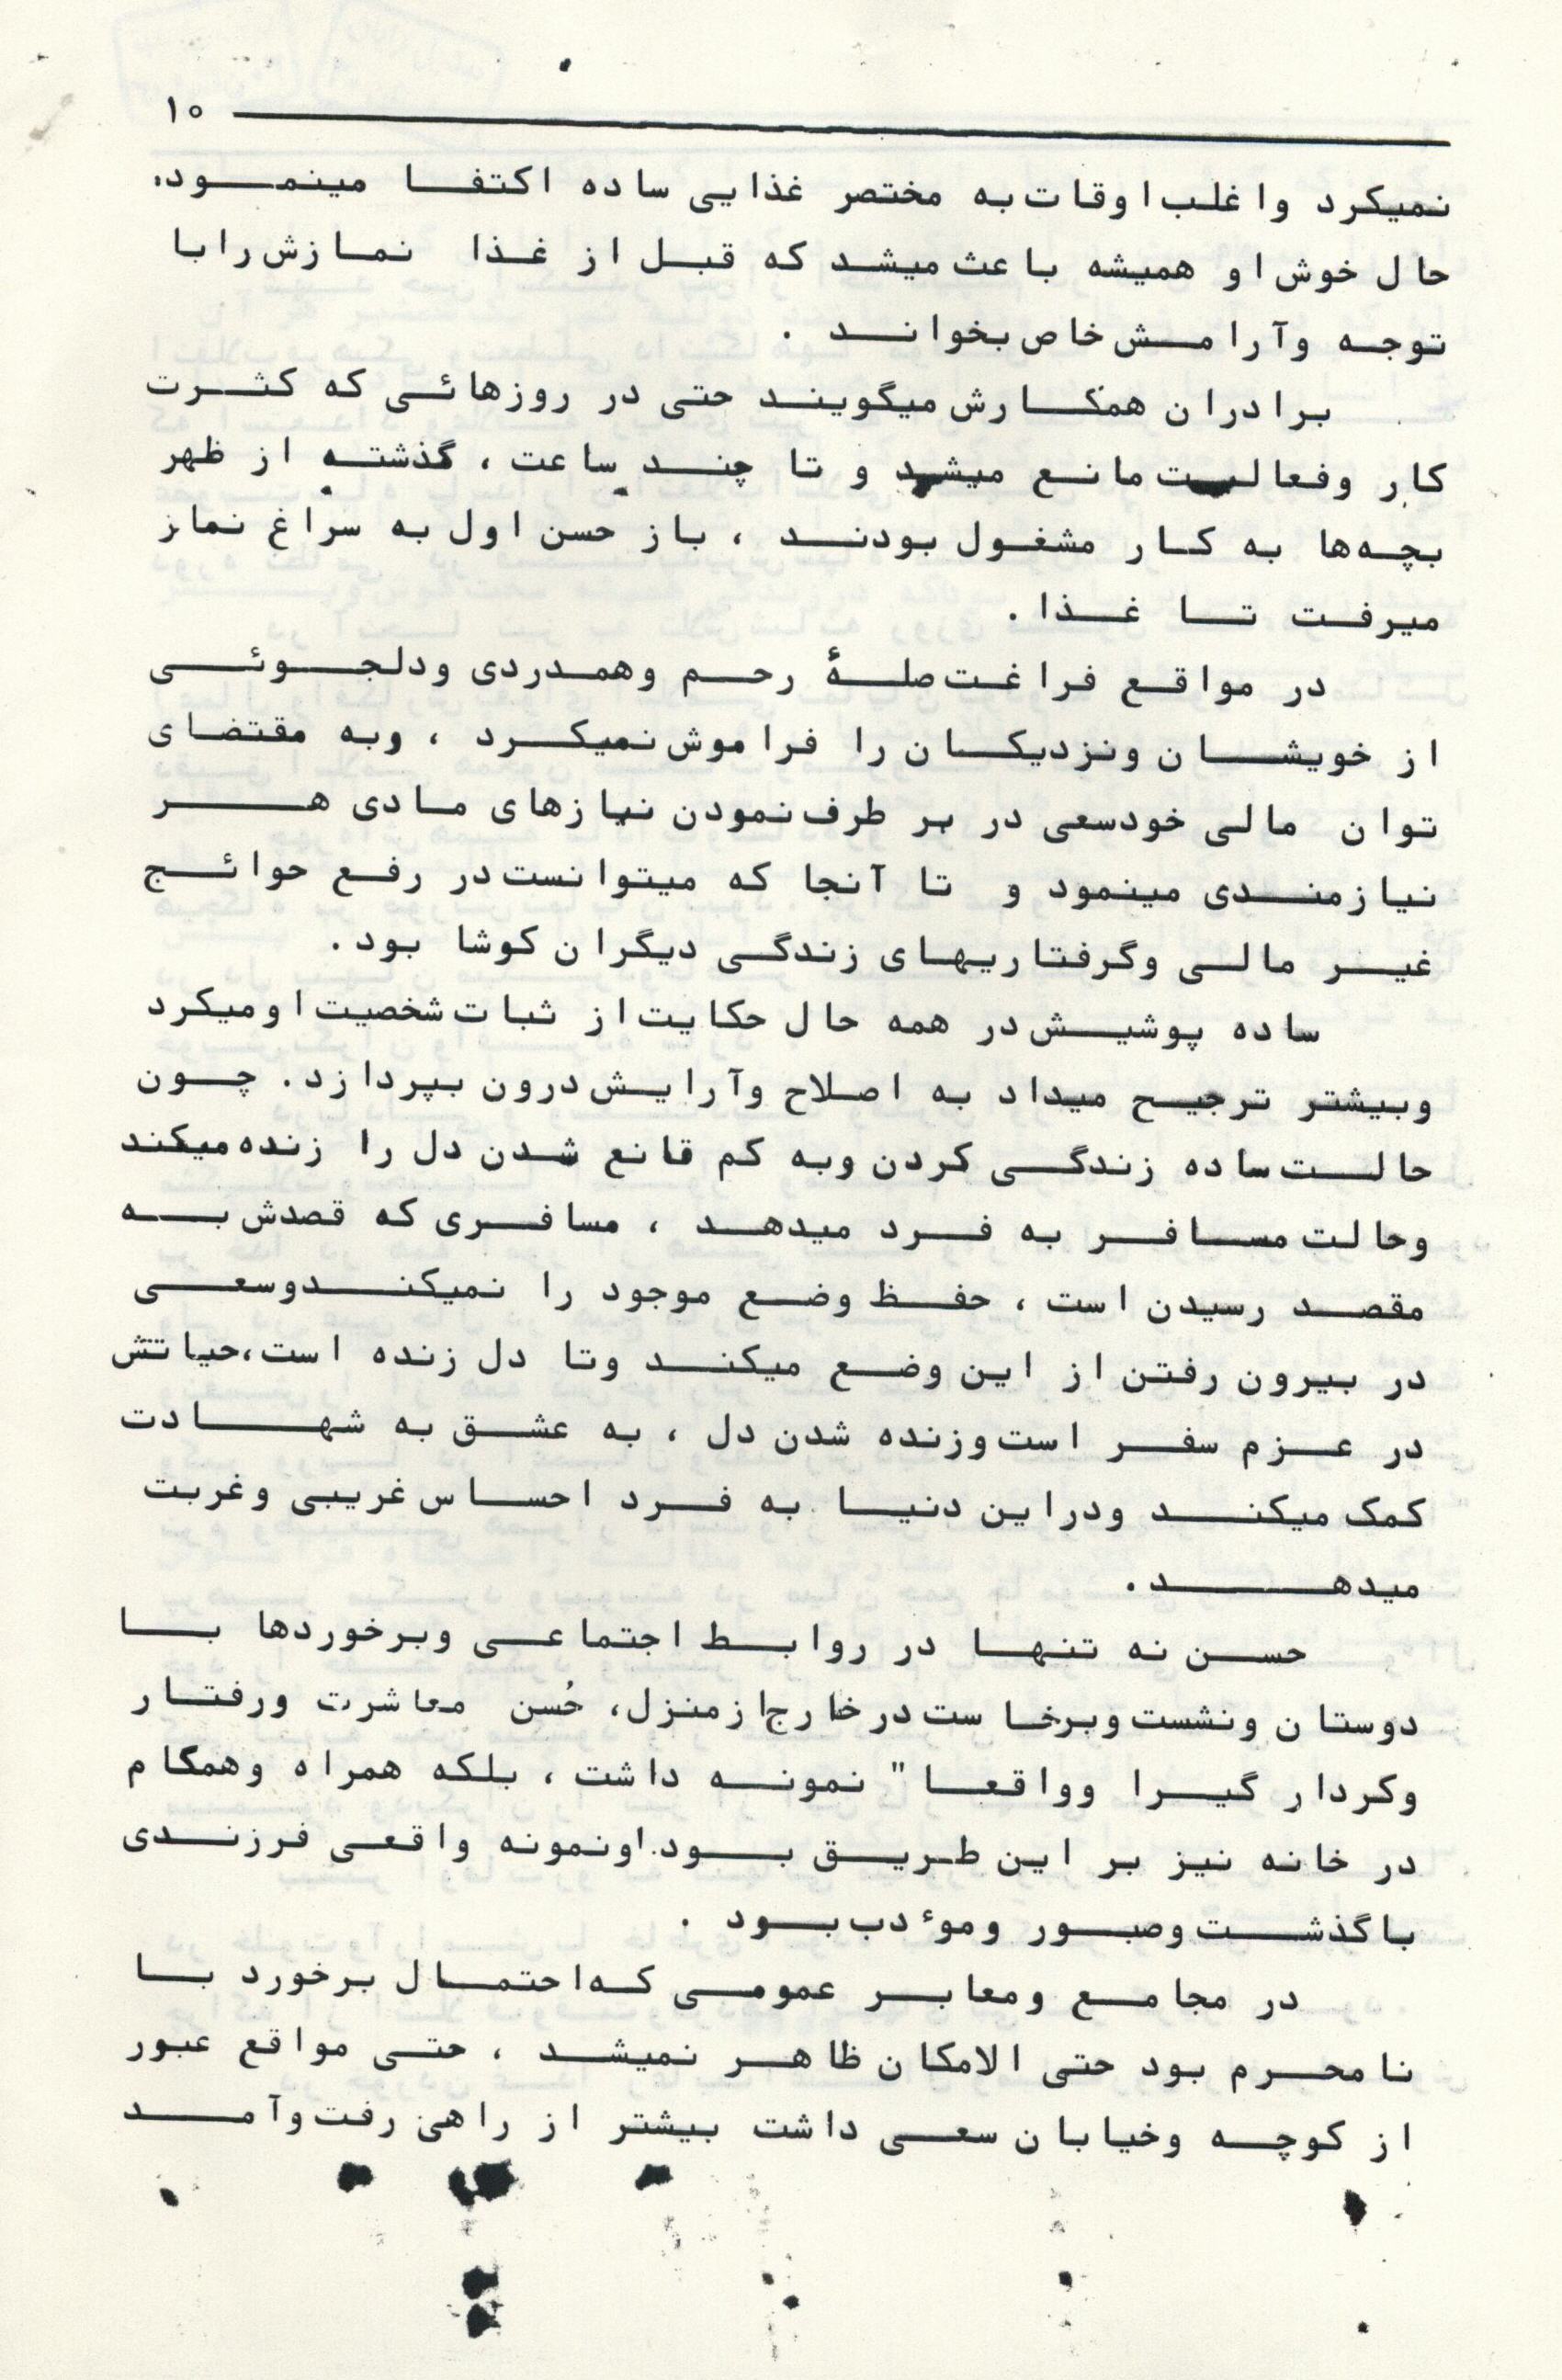 ۱۰
نمیکرد واغلب اوقات به مختصر غذایی ساده اکتفا مینمود.
حال خوش او همیشه باعث میشد که قبل از غذا نمازش رابا
توجه وآرامش خاص بخواند .
برادران همکارش میگویند حتی در روزهائی که کثرت
کار وفعالیت مانع میشد و تا چند ساعت ، گذشته از ظهر
بچه‌ها به کار مشغول بودند ، باز حسن اول به سراغ نماز
میرفت تا غذا .
در مواقع فراغت صلهٔ رحم وهمدردی ودلجوئی
از خویشان ونزدیکان را فراموش نمیکرد ، وبه مقتضای
توان مالی خودسعی در بر طرف نمودن نیازهای مادی هر
نیازمندی مینمود و تا آنجا که میتوانست در رفع حوائج
غیر مالی وگرفتاریهای زندگی دیگران کوشا بود .
ساده پوشیش در همه حال حکایت از ثبات شخصیت او میکرد
وبیشتر ترجیح میداد به اصلاح وآرایش درون بپردازد. چون
حالت ساده زندگی کردن وبه کم قانع شدن دل را زنده میکند
وحالت مسافر به فرد میدهد ، مسافری که قصدش به
مقصد رسیدن است ، حفظ وضع موجود را نمیکندوسعی
در بیرون رفتن از این وضع میکند وتا دل زنده است،حیاتش
در عزم سفر است وزنده شدن دل ، به عشق به شهادت
کمک میکند ودراین دنیا به فرد احساس غریبی وغربت
میدهد .
حسن نه تنها در روابط اجتماعی وبرخوردها با
دوستان ونشست وبرخاست درخارج ازمنزل، حُسن معاشرت ورفتار
وکردار گیرا وواقعا" نمونه داشت ، بلکه همراه وهمگام
در خانه نیز بر این طریق بود.اونمونه واقعی فرزندی
باگذشت وصبور وموٴدب بود .
در مجامع ومعابر عمومی که احتمال برخورد با
نامحرم بود حتی الامکان ظاهر نمیشد ، حتی مواقع عبور
از کوچه وخیابان سعی داشت بیشتر از راهی رفت وآمد